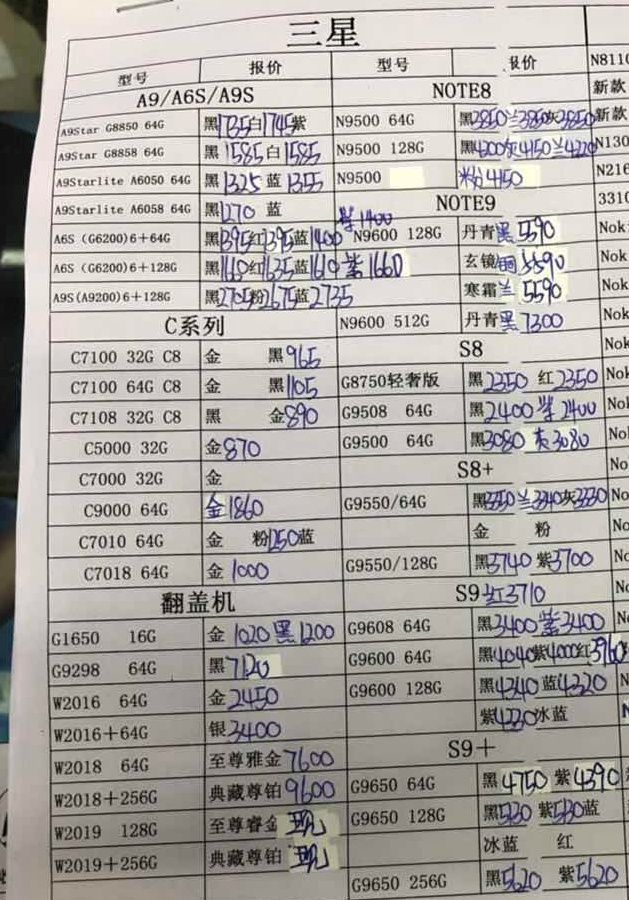 三星
型号 报价 型号 报价
A9/A6S/A9S NOTE8
A9Star G8850 64G 黑1735白1745紫 N9500 64G 黑3850兰3850灰3850
A9Star G8858 64G 黑1585白1585 N9500 128G 黑4200灰4150兰4220
A9Starlite A6050 64G 黑1325蓝1355 N9500 粉4150
A9Starlite A6058 64G 黑1270 蓝 NOTE9
紫1400
A6S (G6200)6+64G 黑1395红1395蓝1400 N9600 128G 丹青黑5590
A6S (G6200)6+128G 红1635蓝1610紫1660 玄镜铜5590
A9S(A9200)6+128G 黑2705粉2675蓝2735 寒霜兰5590
C系列 N9600 512G 丹青黑7300
C7100 32G C8 金 黑965 S8
C7100 64G C8 金 黑1105 G8750轻奢版 黑2350 红2350
C7108 32G C8 黑 金890 G9508 64G 黑2400紫2400
C5000 32G 金870 G9500 64G 黑3080灰3080
C7000 32G 金 S8+
C9000 64G 金1860 G9550/64G 黑3350兰3340灰3330
C7010 64G 金 粉1250蓝 金 粉
C7018 64G 金1000 G9550/128G 黑3740紫3700
翻盖机 S9红3710
G1650 16G 金1020黑1200 G9608 64G 黑3400紫3400
G9298 64G 黑7120 G9600 64G 黑4040紫4000红3960
W2016 64G 金2450 G9600 128G 黑4340蓝4320
W2016+64G 银3400 紫4230冰蓝
W2018 64G 至尊雅金7600 S9+
W2018+256G 典藏尊铂9600 G9650 64G 黑4750 紫4390
W2019 128G 至尊睿金现 G9650 128G 黑5130紫5130蓝
W2019+256G 典藏尊铂现 冰蓝 红
G9650 256G 黑5620 紫5620
N8110
新款
新款
N130
N216
3310